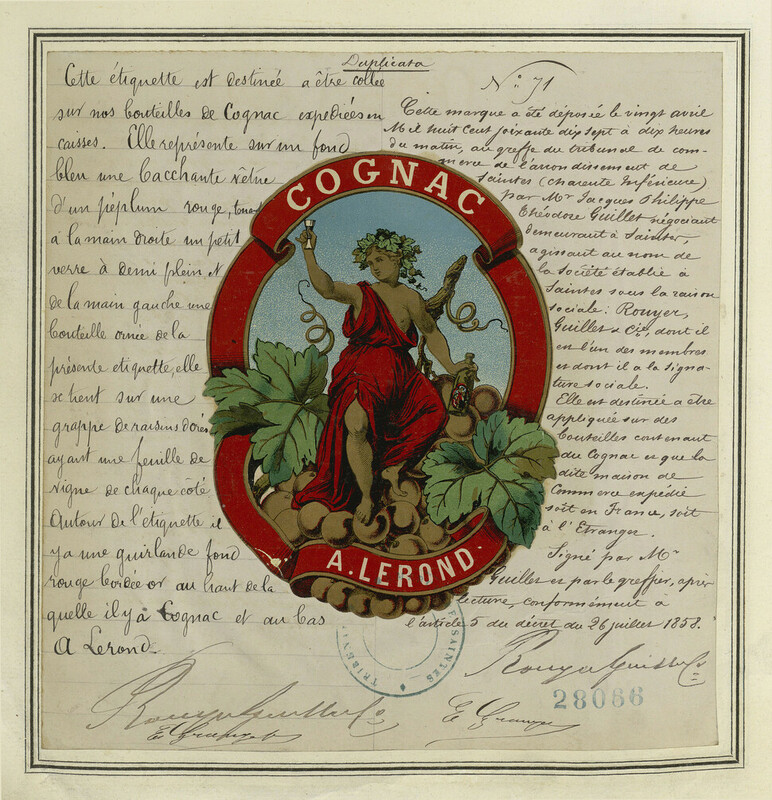 Duplicata
Cette étiquette est destinée a être collée
sur nos bouteilles de Cognac expédiées en
caisses. Elle représente sur un fond
bleu une bacchante vêtue
d'un péplum rouge, tenant
à la main droite un petit
verre à demi plein et
de la main gauche une
bouteille ornée de la
présente etiquette, elle
se tient sur une
grappe de raisins dorés
ayant une feuille de
vigne de chaque côté
Autour de l'étiquette il
y a une guirlande fond
rouge bordée or au haut de la
quelle il y a Cognac et au bas
A Lerond.
No. 71
Cette marque a été déposée le vingt avril
Mil huit cent soixante dix sept à dix heures
du matin, au greffe du tribunal de com-
merce de l'arrondissement de
Saintes (Charente Inférieure)
par Mr Jacques Philippe
Théodore Guillet négociant
demeurant à Saintes,
agissant au nom de
la Société établie à
Saintes sous la raison
sociale: Rouyer,
Guillet & Cie, dont il
est l'un des membres
et dont il a la signa-
ture sociale.
Elle est destinée a être
appliquée sur des
bouteilles contenant
du Cognac et que la
dite maison de
Commerce expédie
soit en France, soit
à l'Etranger.
Signé par Mr
Guillet et par le greffier, après
lecture, conformément à
l'article 5 du décret du 26 juillet 1858.
COGNAC
A. LEROND.
TRIBUNAL
SAINTES
Rouyer Guillet & Co
Rouyer Guillet & Co
28086